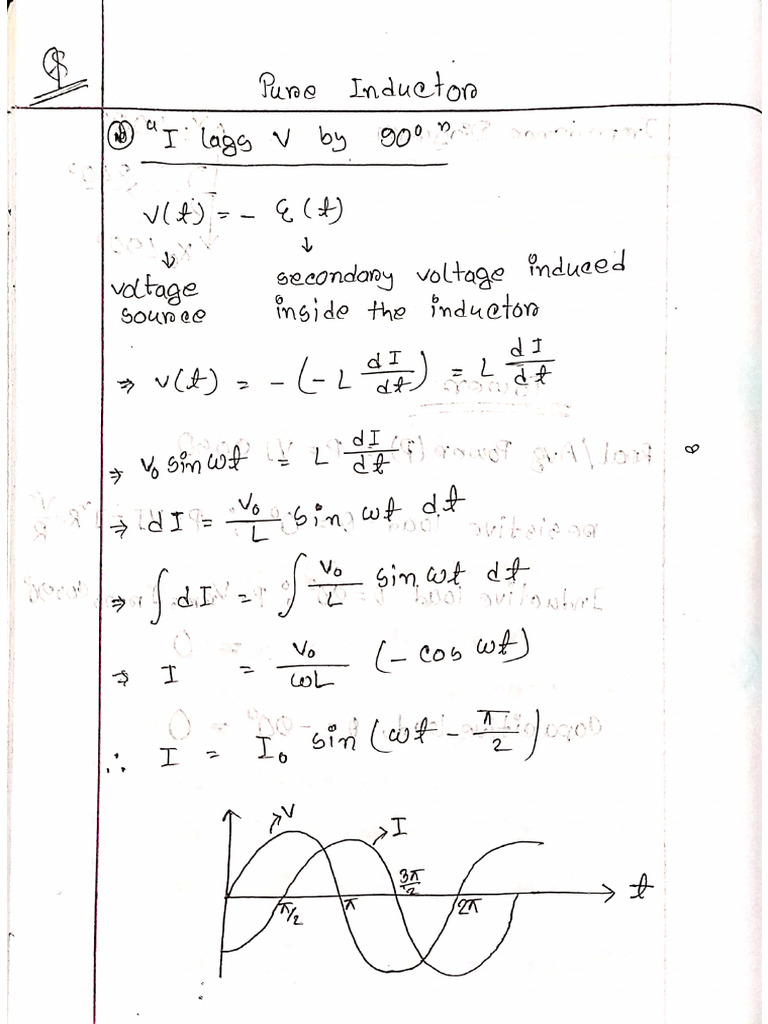 Pure Inductor
"I lags V by 90°"
V(t) = - ε(t)
↓ ↓
voltage source
secondary voltage induced inside the inductor
⇒ V(t) = - (-L dI/dt) = L dI/dt
⇒ V₀ sin ωt = L dI/dt
⇒ dI = V₀/L sin ωt dt
⇒ ∫ dI = ∫ V₀/L sin ωt dt
⇒ I = V₀/ωL (- cos ωt)
∴ I = I₀ sin (ωt - π/2)
V
I
π/2 π 3π/2 2π t